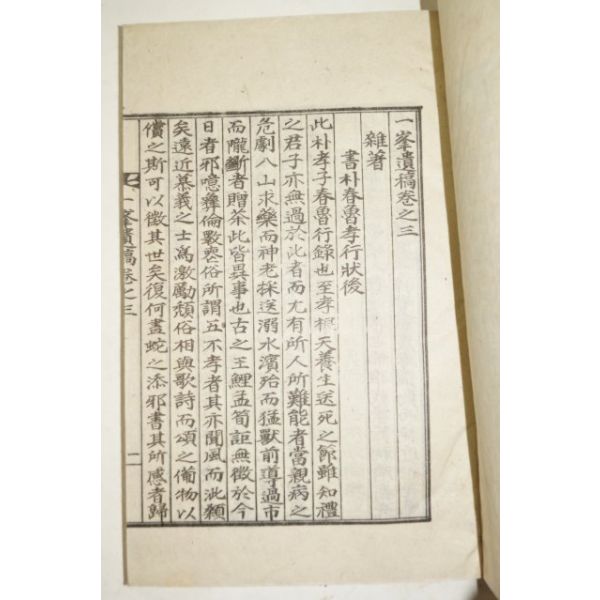 一峯遺稿卷之三
雜著
書朴春魯孝行狀後
此朴孝子春魯行錄也至孝根天養生送死之節雖知禮
之君子亦無過於此者而尤有所人所難能者當親病之
危劇八山求藥而神老採送溺水濱殆而猛獸前導過市
而隴斷者贈茶此皆異事也古之王鯉孟筍詎無徵於今
日者邪噫彜倫斁喪俗所謂五不孝者其亦聞風而泚顙
矣遠近慕義之士爲激勵頹俗相與歌詩而頌之備物以
償之斯可以徵其世矣復何畫蛇之添邪書其所感者歸
一峯遺稿卷之三
一